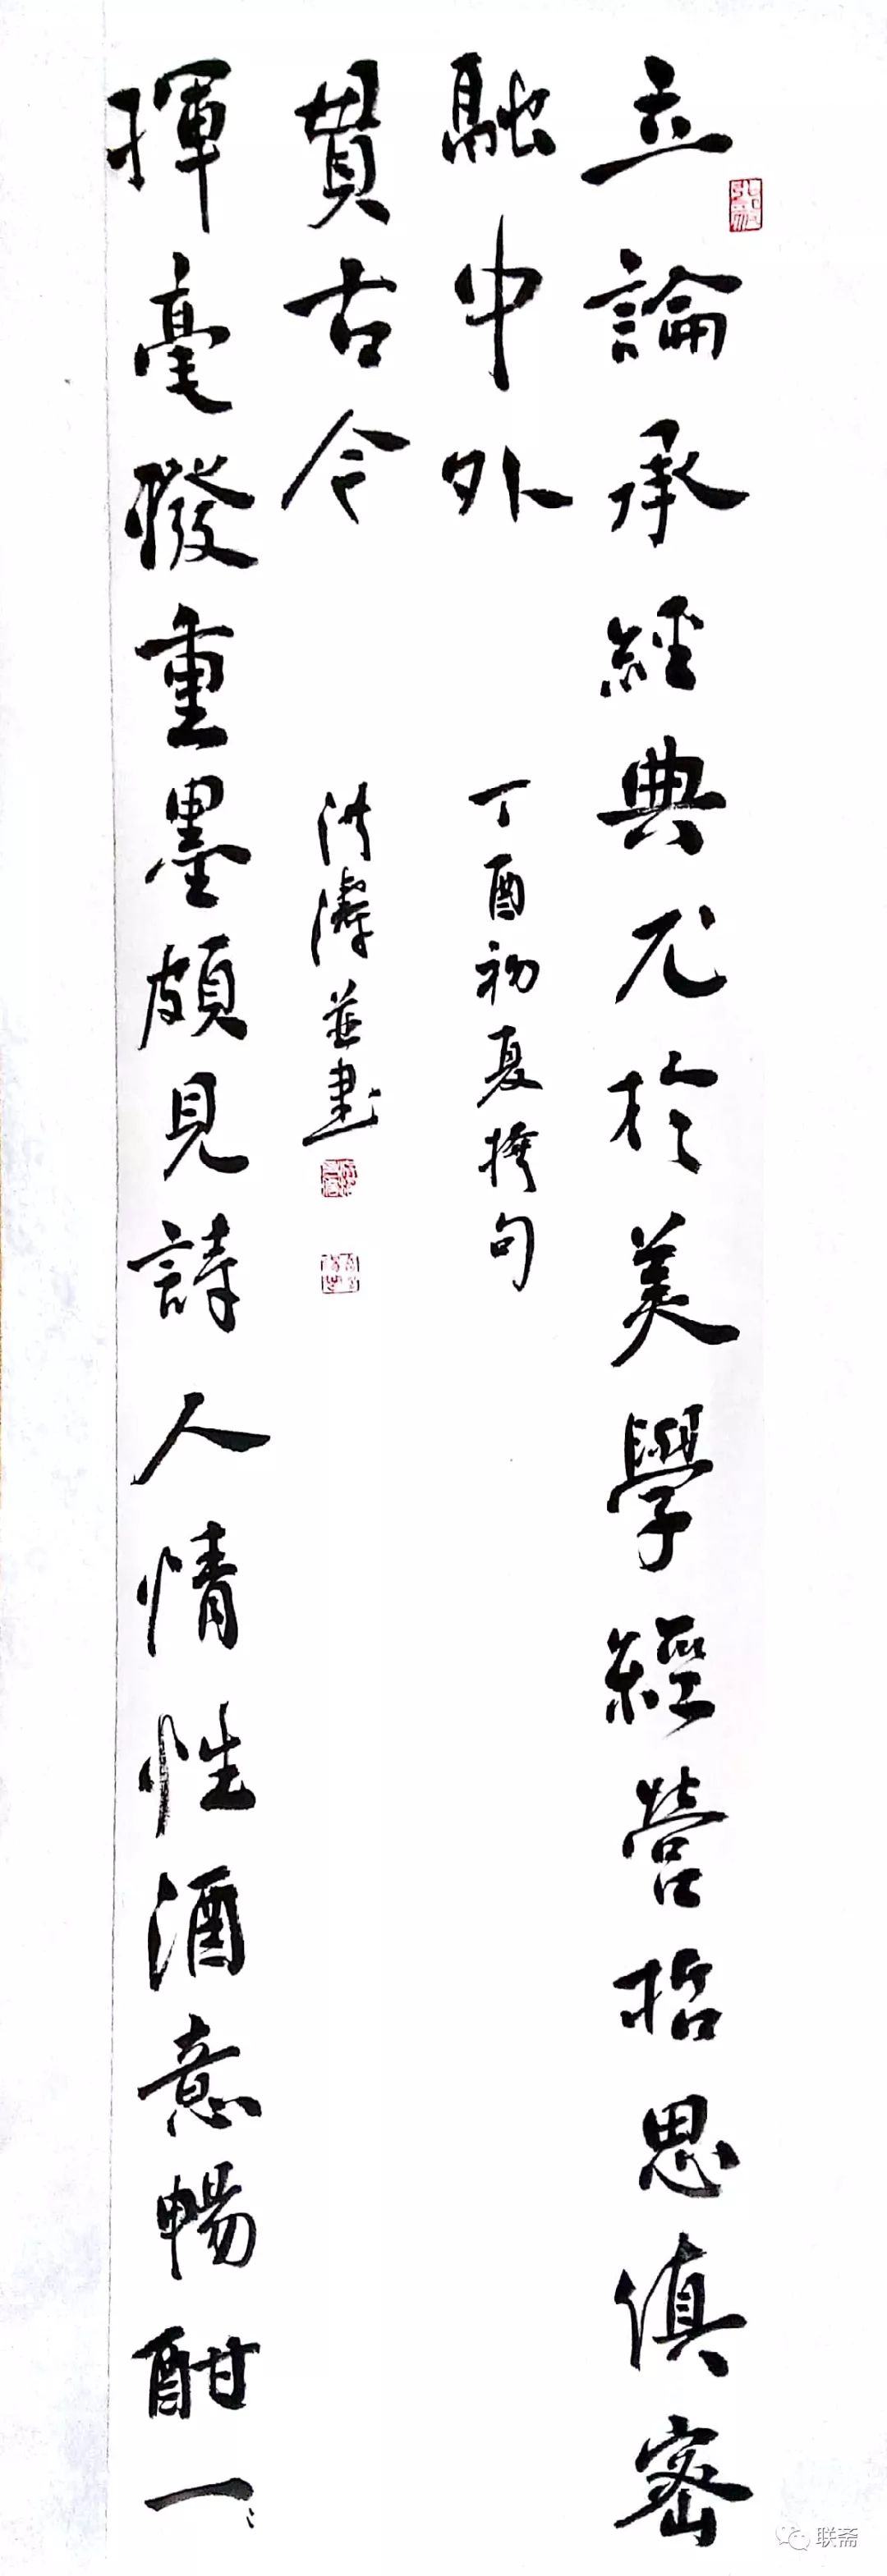 立論承經典尤於美學經營哲思慎密
融中外
丁酉初夏撰句
揮毫潑重墨頗見詩人情性酒意暢酣一
貫古今
並書
联斋